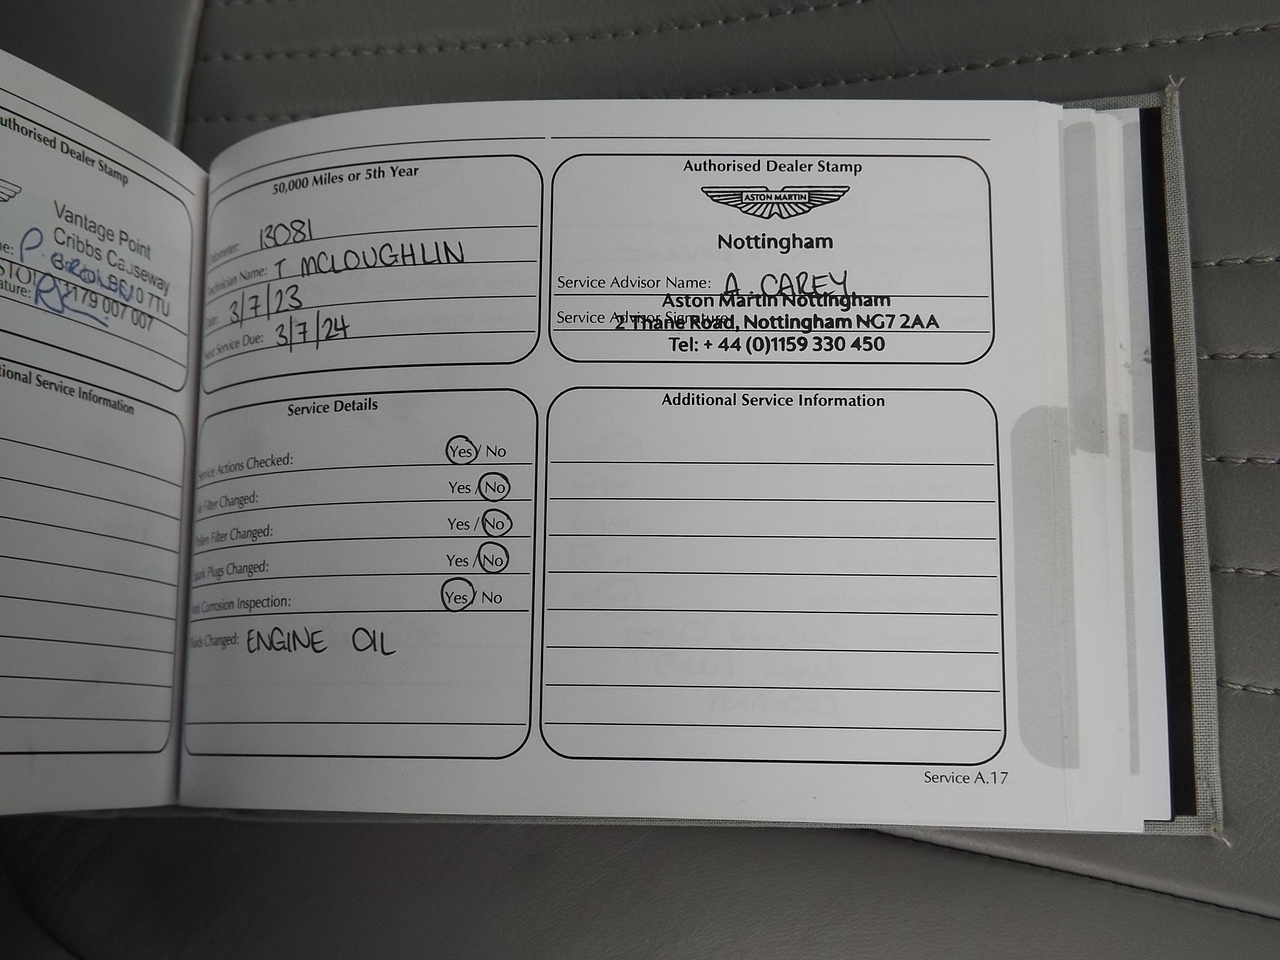 uthorised Dealer Stamp
Vantage Point
Cribbs Causeway
BS10 7TU
1179 007 007
ature:
tional Service Information
50,000 Miles or 5th Year
13081
Technician Name: T MCLOUGHLIN
3/7/23
Next Service Due: 3/7/24
Authorised Dealer Stamp
ASTON MARTIN
Nottingham
Service Advisor Name: A. CAREY
Aston Martin Nottingham
Service Advisor Signature:
2 Thane Road, Nottingham NG7 2AA
Tel: + 44 (0)1159 330 450
Service Details
Service Actions Checked: Yes / No
Filter Changed: Yes / No
Pollen Filter Changed: Yes / No
Spark Plugs Changed: Yes / No
Anti Corrosion Inspection: Yes / No
Fluids Changed: ENGINE OIL
Additional Service Information
Service A.17